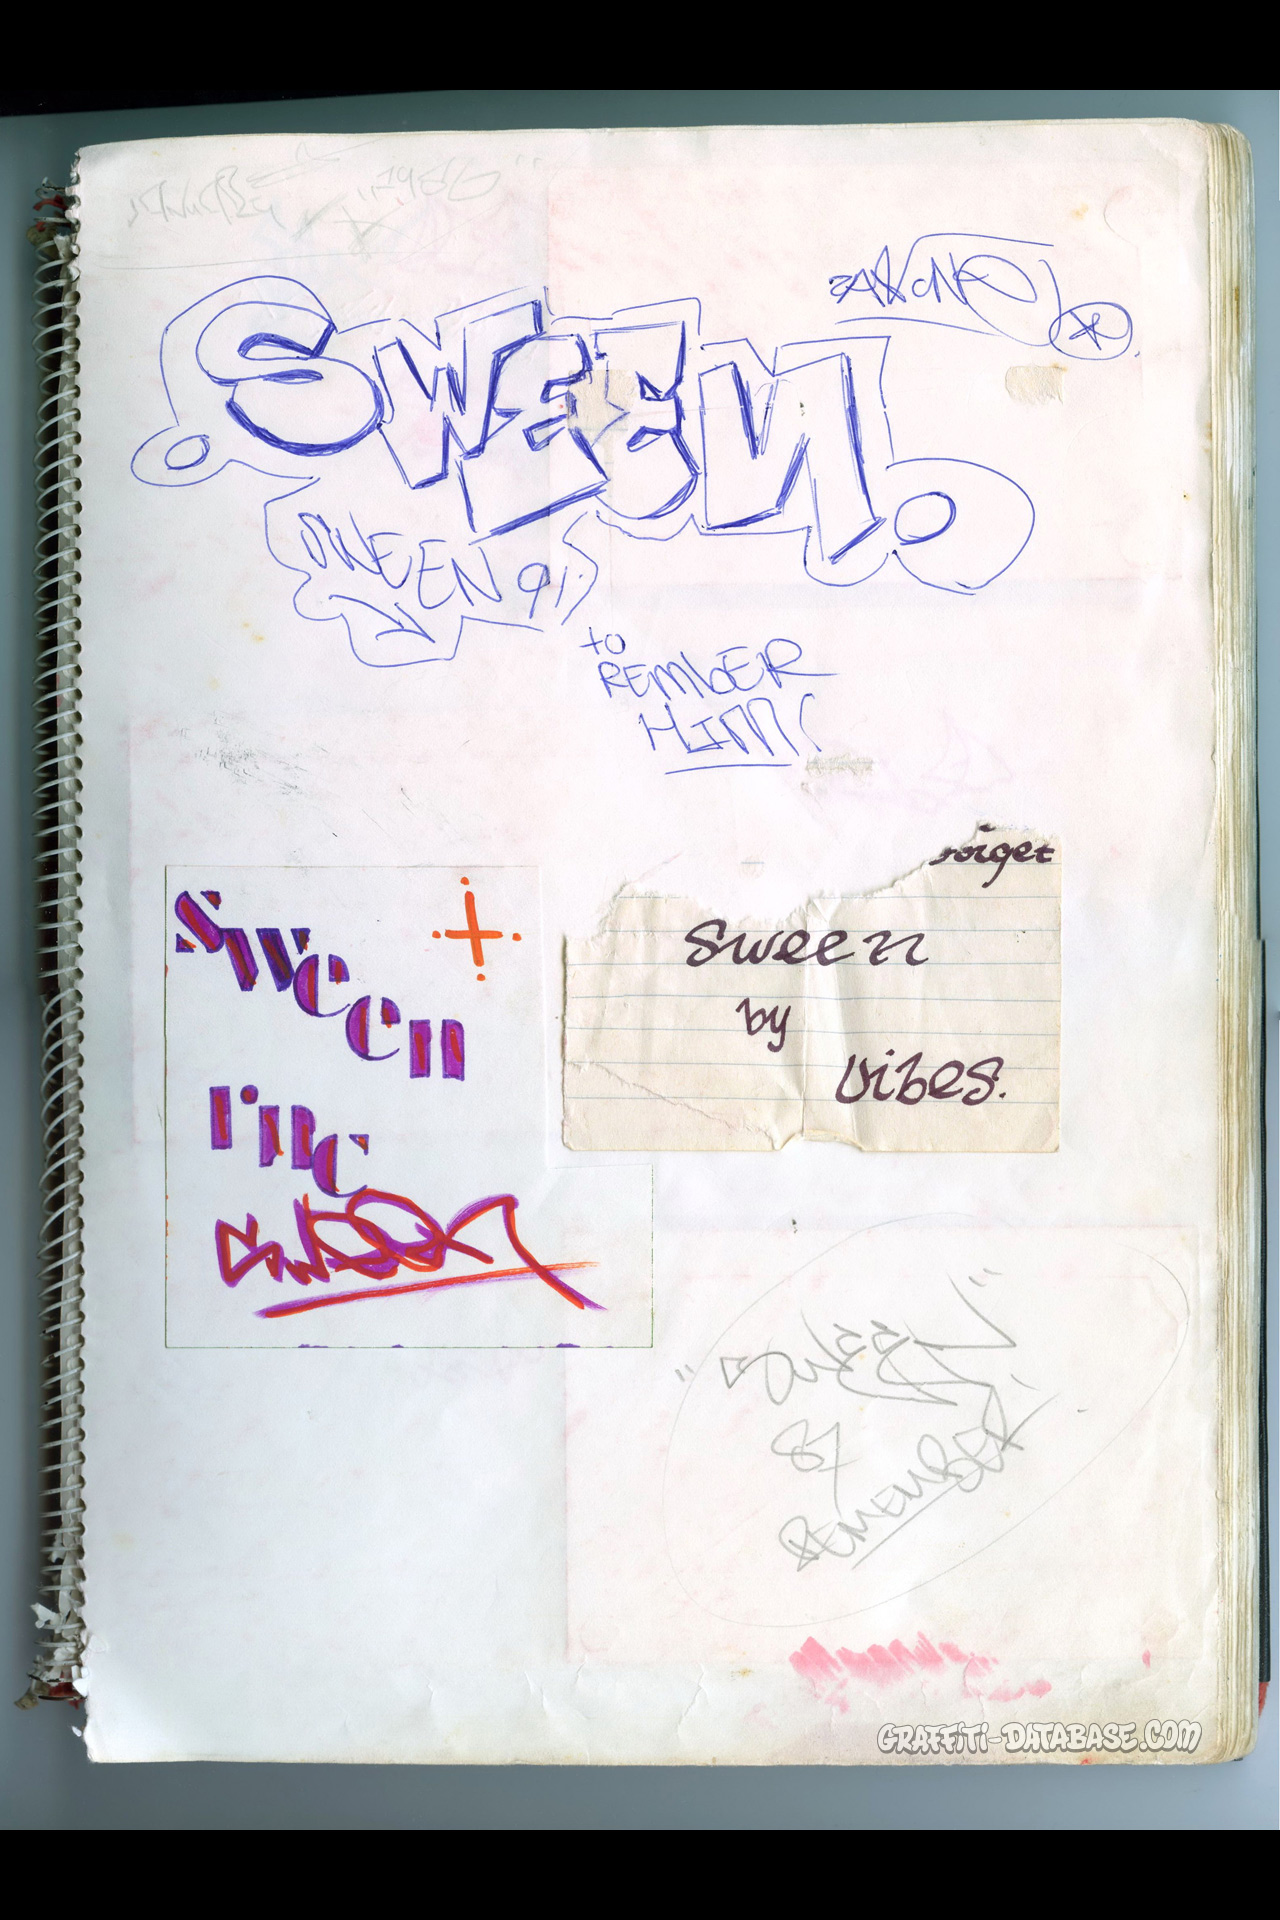 "1986"
SWEEN
SWEEN 91
to
REMBER
HIM!
forget
Sween
Sween
by
Vibes.
INC
Sween
"SWEEN"
87
REMEMBER
GRAFFITI-DATABASE.COM